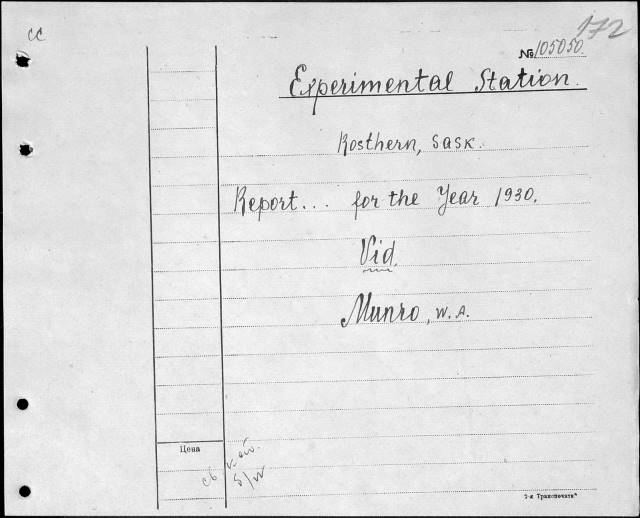 cc
172
№ 105050.
Experimental Station.
Rosthern, Sask.
Report... for the Year 1930.
Vid.
Munro, W. A.
Цена
св
б/н
"1-я Транспечать"